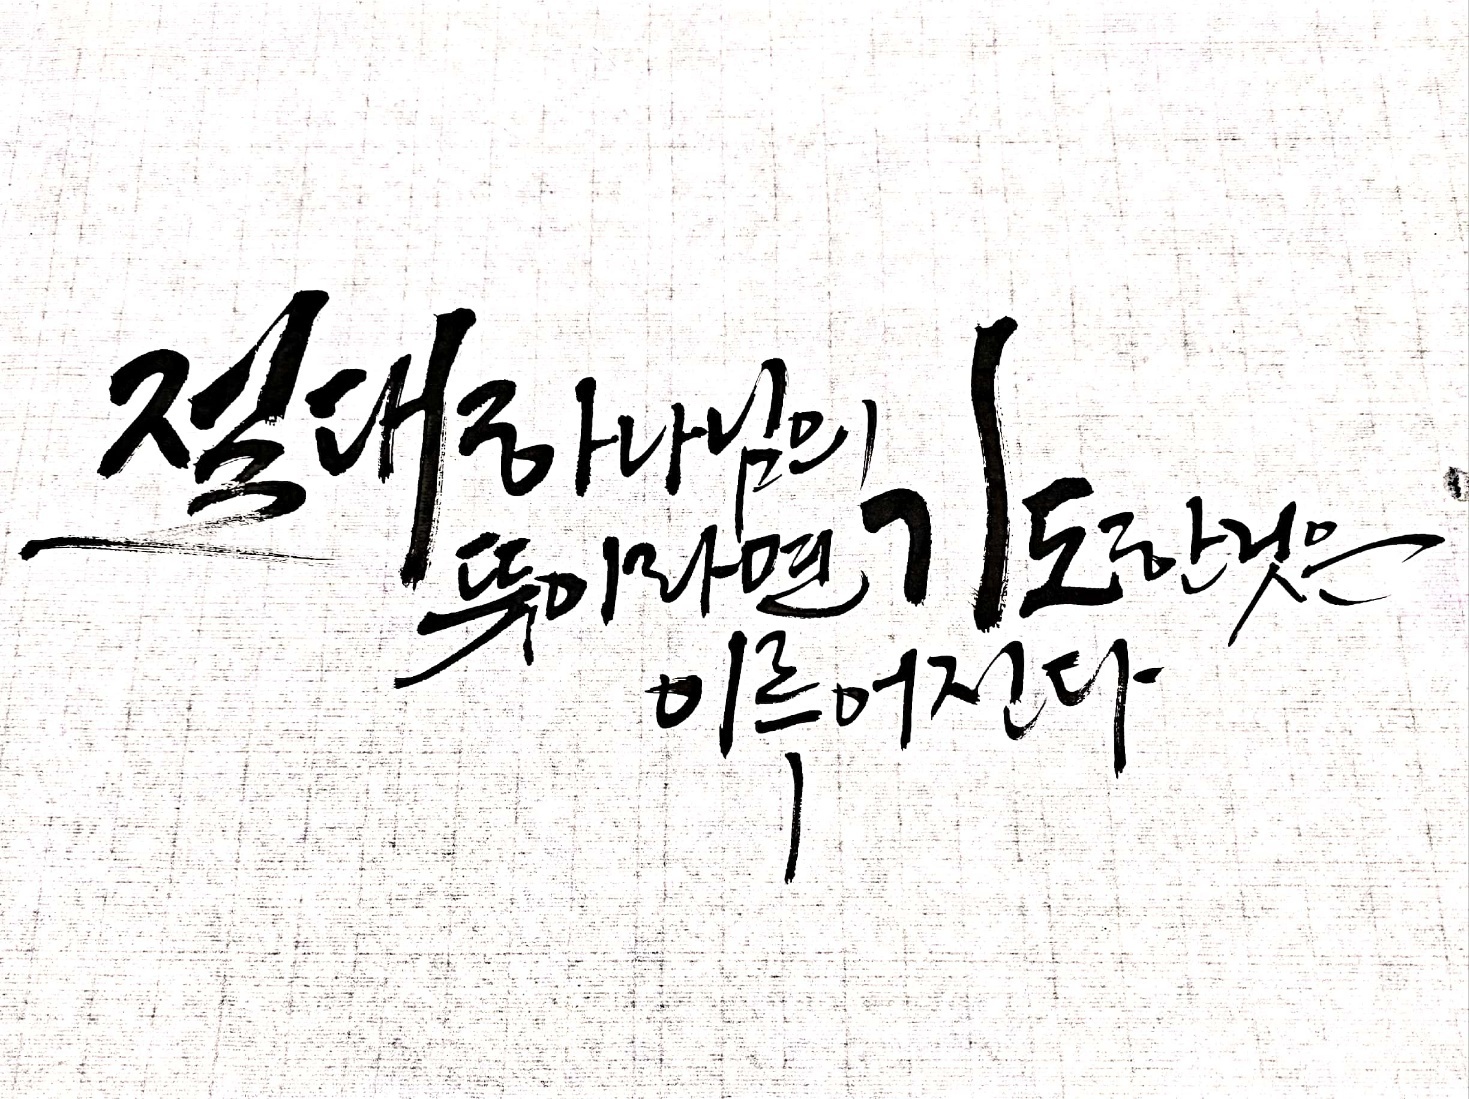 절대 하나님의
뜻이라면 기도한것은
이루어진다